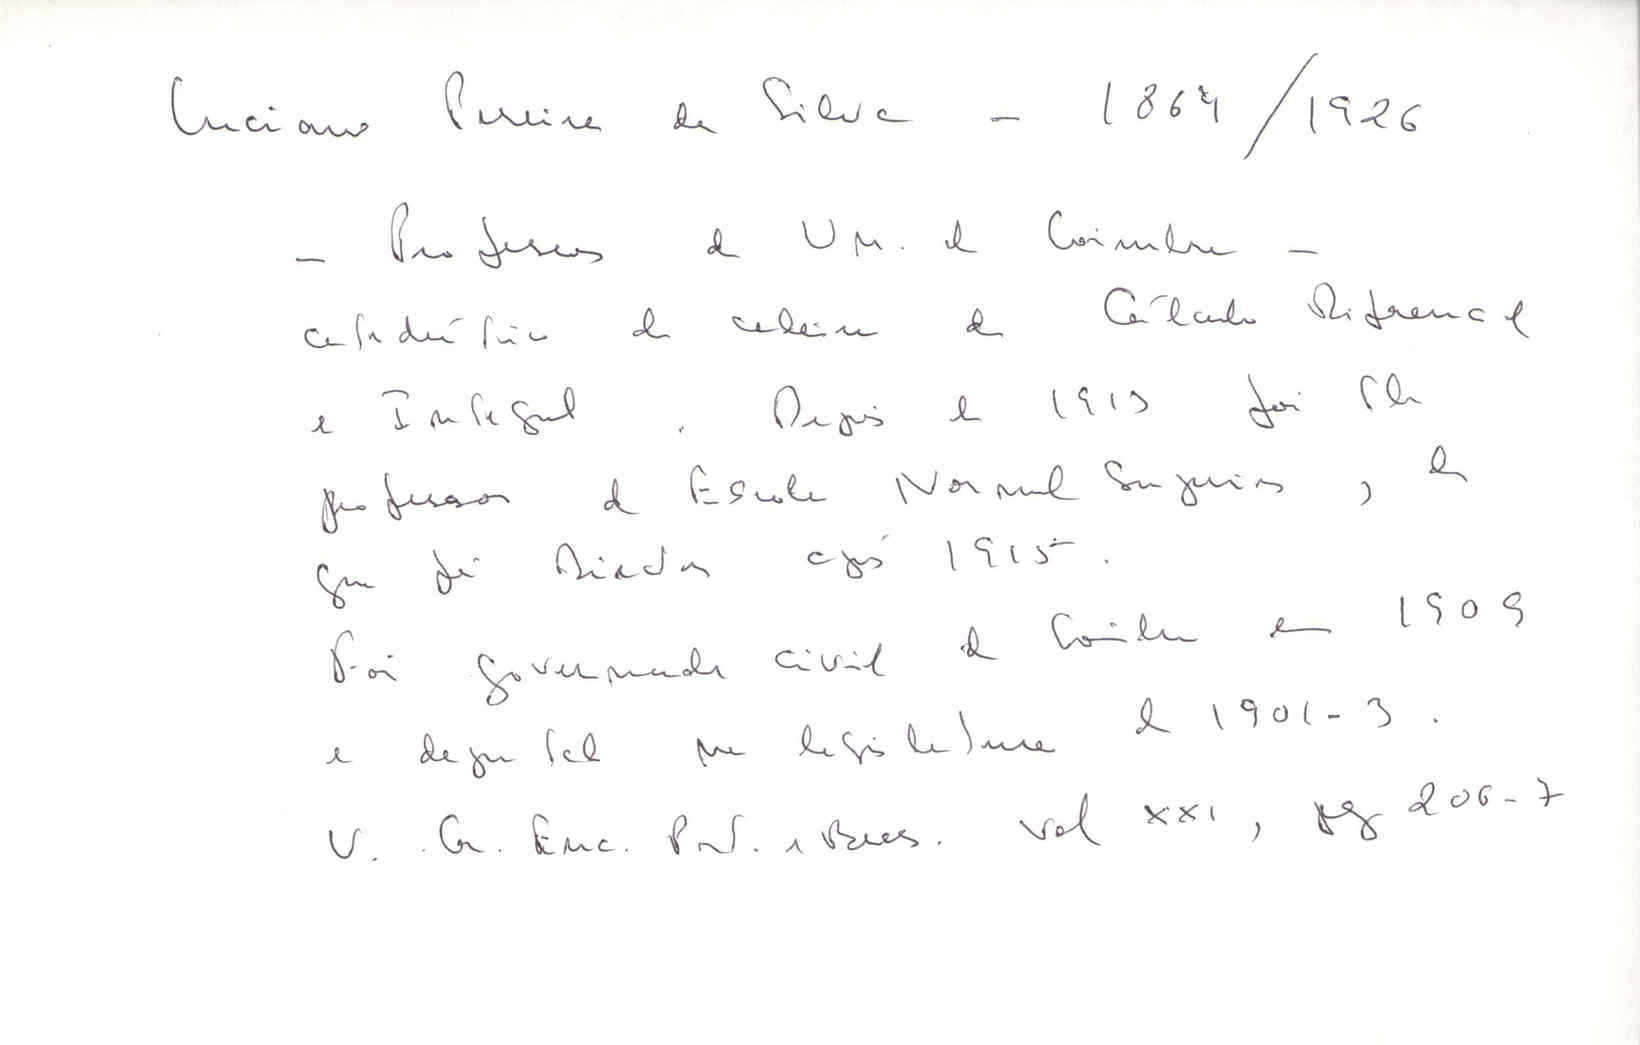 Luciano Pereira da Silva - 1864/1926
- Professor da Un. de Coimbra -
catedrático da cadeira de Cálculo Diferencial
e Integral. Depois de 1913 foi tb
professor da Escola Normal Superior, de
que foi Director após 1915.
Foi governador civil de Coimbra em 1909
e deputado na legislatura de 1901-3.
V. Gr. Enc. Port. e Bras. vol XXI, pg 206-7